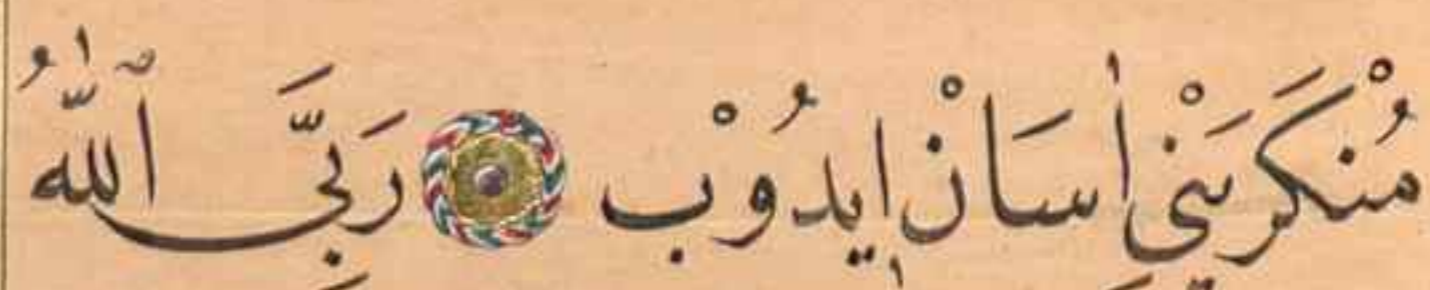 مُنْكَرَيْنِى اٰسَانْ ايدُوْبْ ۞ رَبِّىَ ٱللّٰهُ